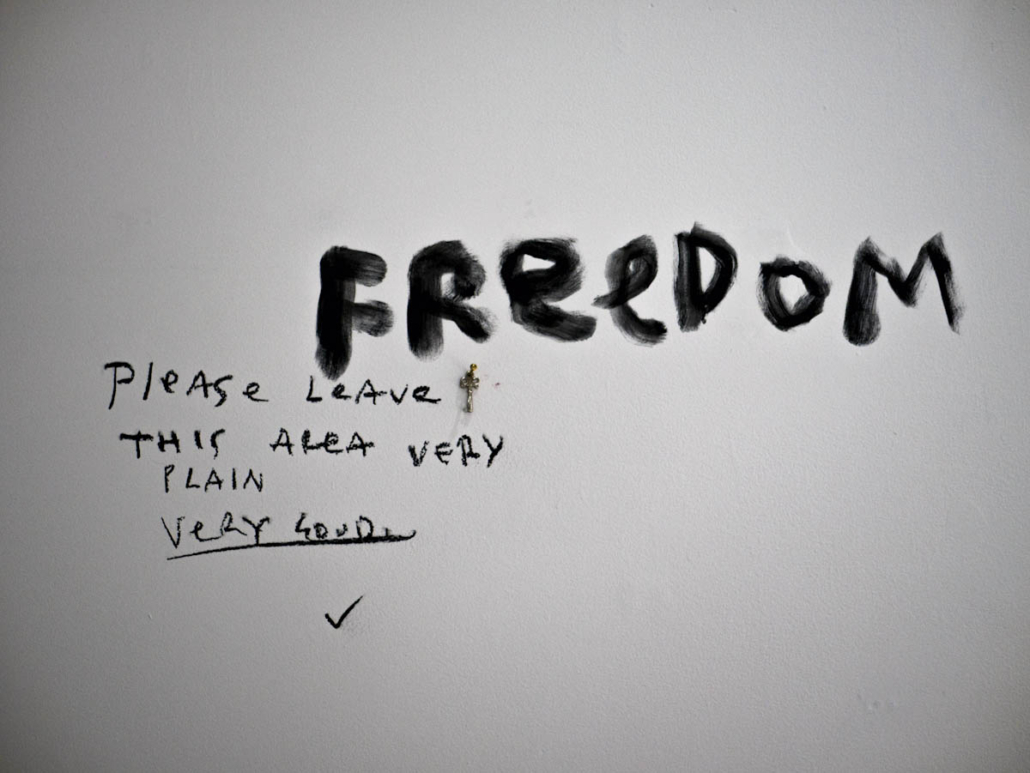 FReeDOM
PleASe LeAve
THIS AREA VERY
PLAIN
VeRY LOUD.